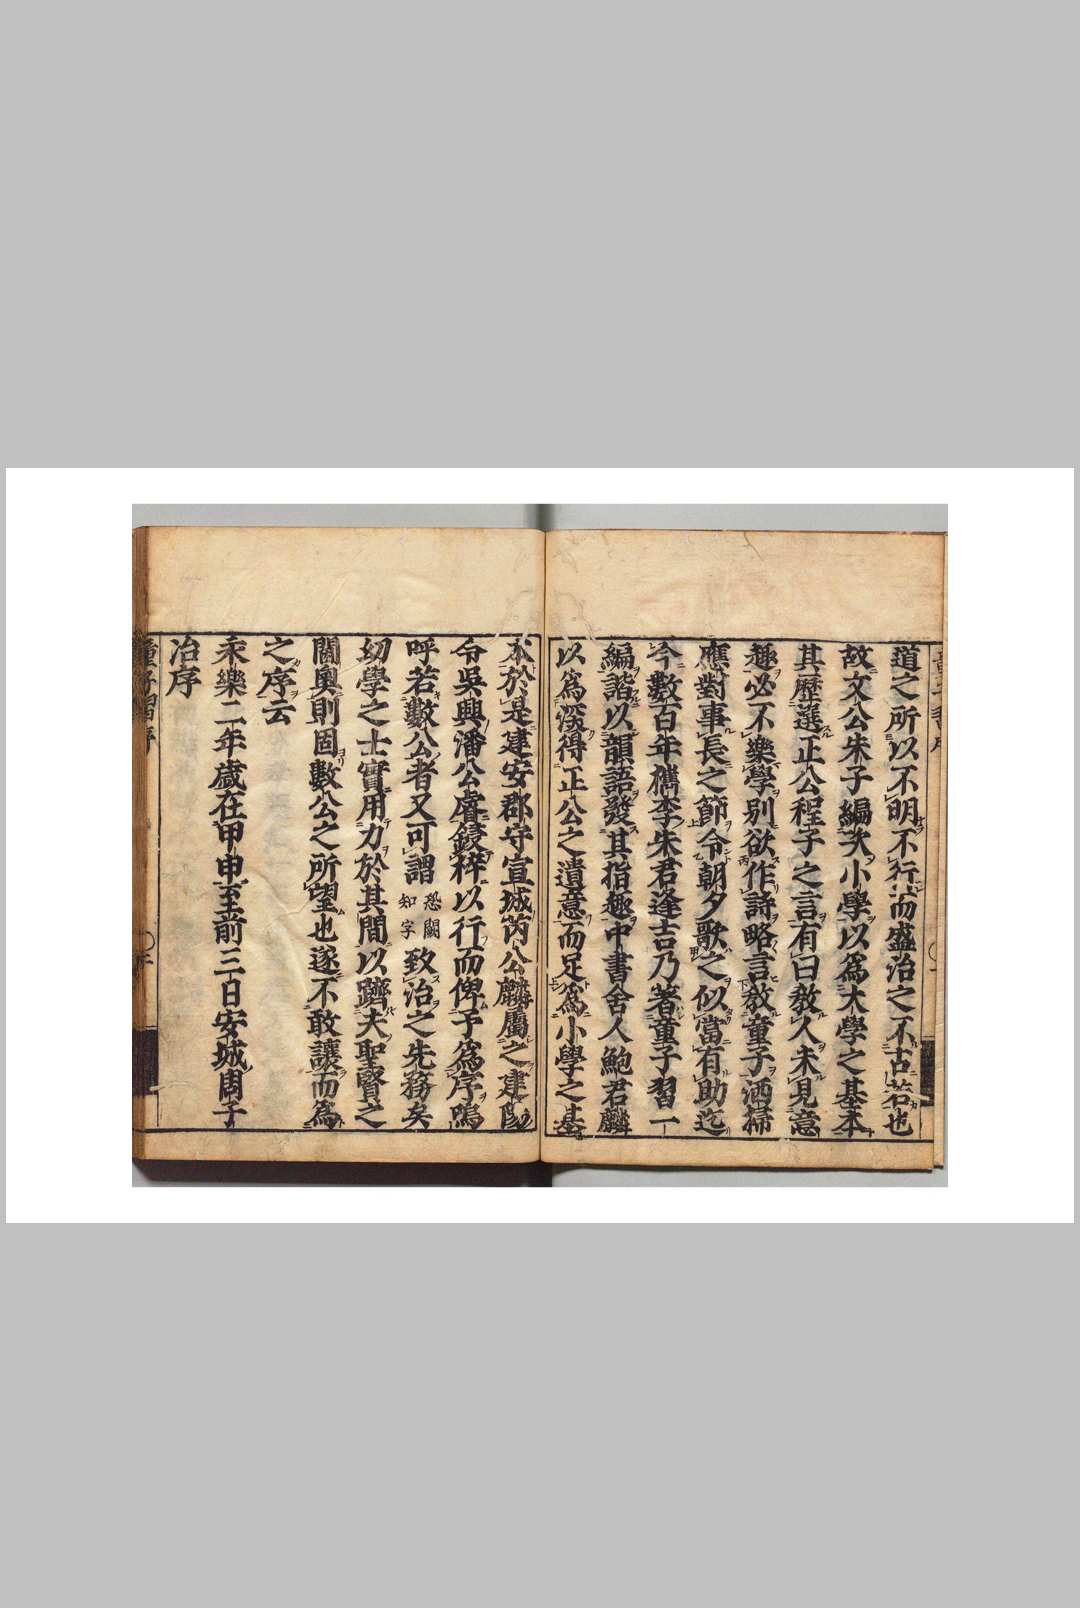 道之所以不明不行而盛治之不古若也
故文公朱子編次小學以為大學之基本
其歷選正公程子之言有曰教人未見意
趣必不樂學別欲作詩略言教童子洒掃
應對事長之節令朝夕歌之似當有助迄
今數百年檇李朱君逢吉乃著童子習一
編諧以韻語發其指趣中書舍人鮑君麟
以為深得正公之遺意而足為小學之基
本於是建安郡守宣城芮公麟屬之建陽
令吳興潘公虞鋟梓以行而俾予為序嗚
呼若數公者又可謂恐闕知字致治之先務矣
幼學之士實用力於其間以躋夫聖賢之
閫奧則固數公之所望也遂不敢讓而為
之序云
永樂二年歲在甲申至前三日安城周子
冶序
童子習序